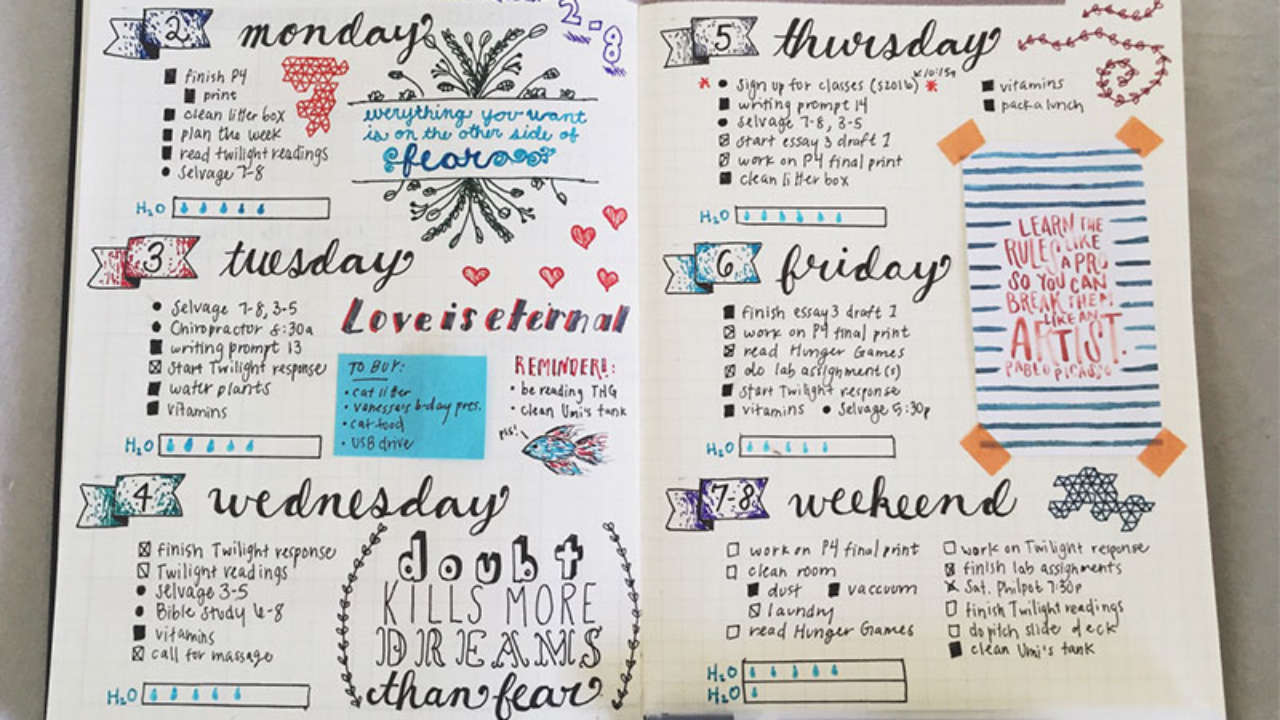 2-8
2 monday
finish P4
print
clean litter box
plan the week
read twilight readings
Selvage 7-8
H₂O
everything you want
is on the other side of
fear
3 tuesday
Selvage 7-8, 3-5
Chiropractor 8:30a
writing prompt 13
Start Twilight response
water plants
vitamins
H₂O
Love is eternal
TO BUY:
cat litter
vanessa's b-day pres.
cat food
USB drive
REMINDER!:
be reading THG
clean Umi's tank
pls!
4 wednesday
finish Twilight response
Twilight readings
Selvage 3-5
Bible Study 6-8
vitamins
call for massage
H₂O
doubt
KILLS MORE
DREAMS
than fear
5 thursday
Sign up for classes (S2016) 10:15a
writing prompt 14
selvage 7-8, 3-5
start essay 3 draft 1
work on P4 final print
clean litter box
vitamins
pack a lunch
H₂O
LEARN THE
RULES LIKE
A PRO
SO YOU CAN
BREAK THEM
LIKE AN
ARTIST.
PABLO PICASSO
6 friday
finish essay 3 draft 1
work on P4 final print
read Hunger Games
do lab assignment(s)
Start Twilight response
vitamins • Selvage 5:30p
H₂O
7-8 weekeend
work on P4 final print
clean room
dust vaccuum
laundry
read Hunger Games
work on Twilight response
finish lab assignments
Sat. Philpot 7:30p
finish Twilight readings
do pitch slide deck
clean Umi's tank
H₂O
H₂O